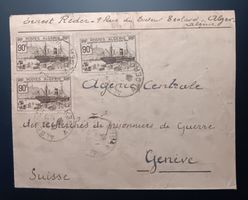 Ernest Réder - 9 Rue du Docteur - Alger
Algérie
POSTES ALGERIE
90c
POSTES ALGERIE
90c
POSTES ALGERIE
90c
Agence Centrale
des recherches de prisonniers de Guerre
Genève
Suisse